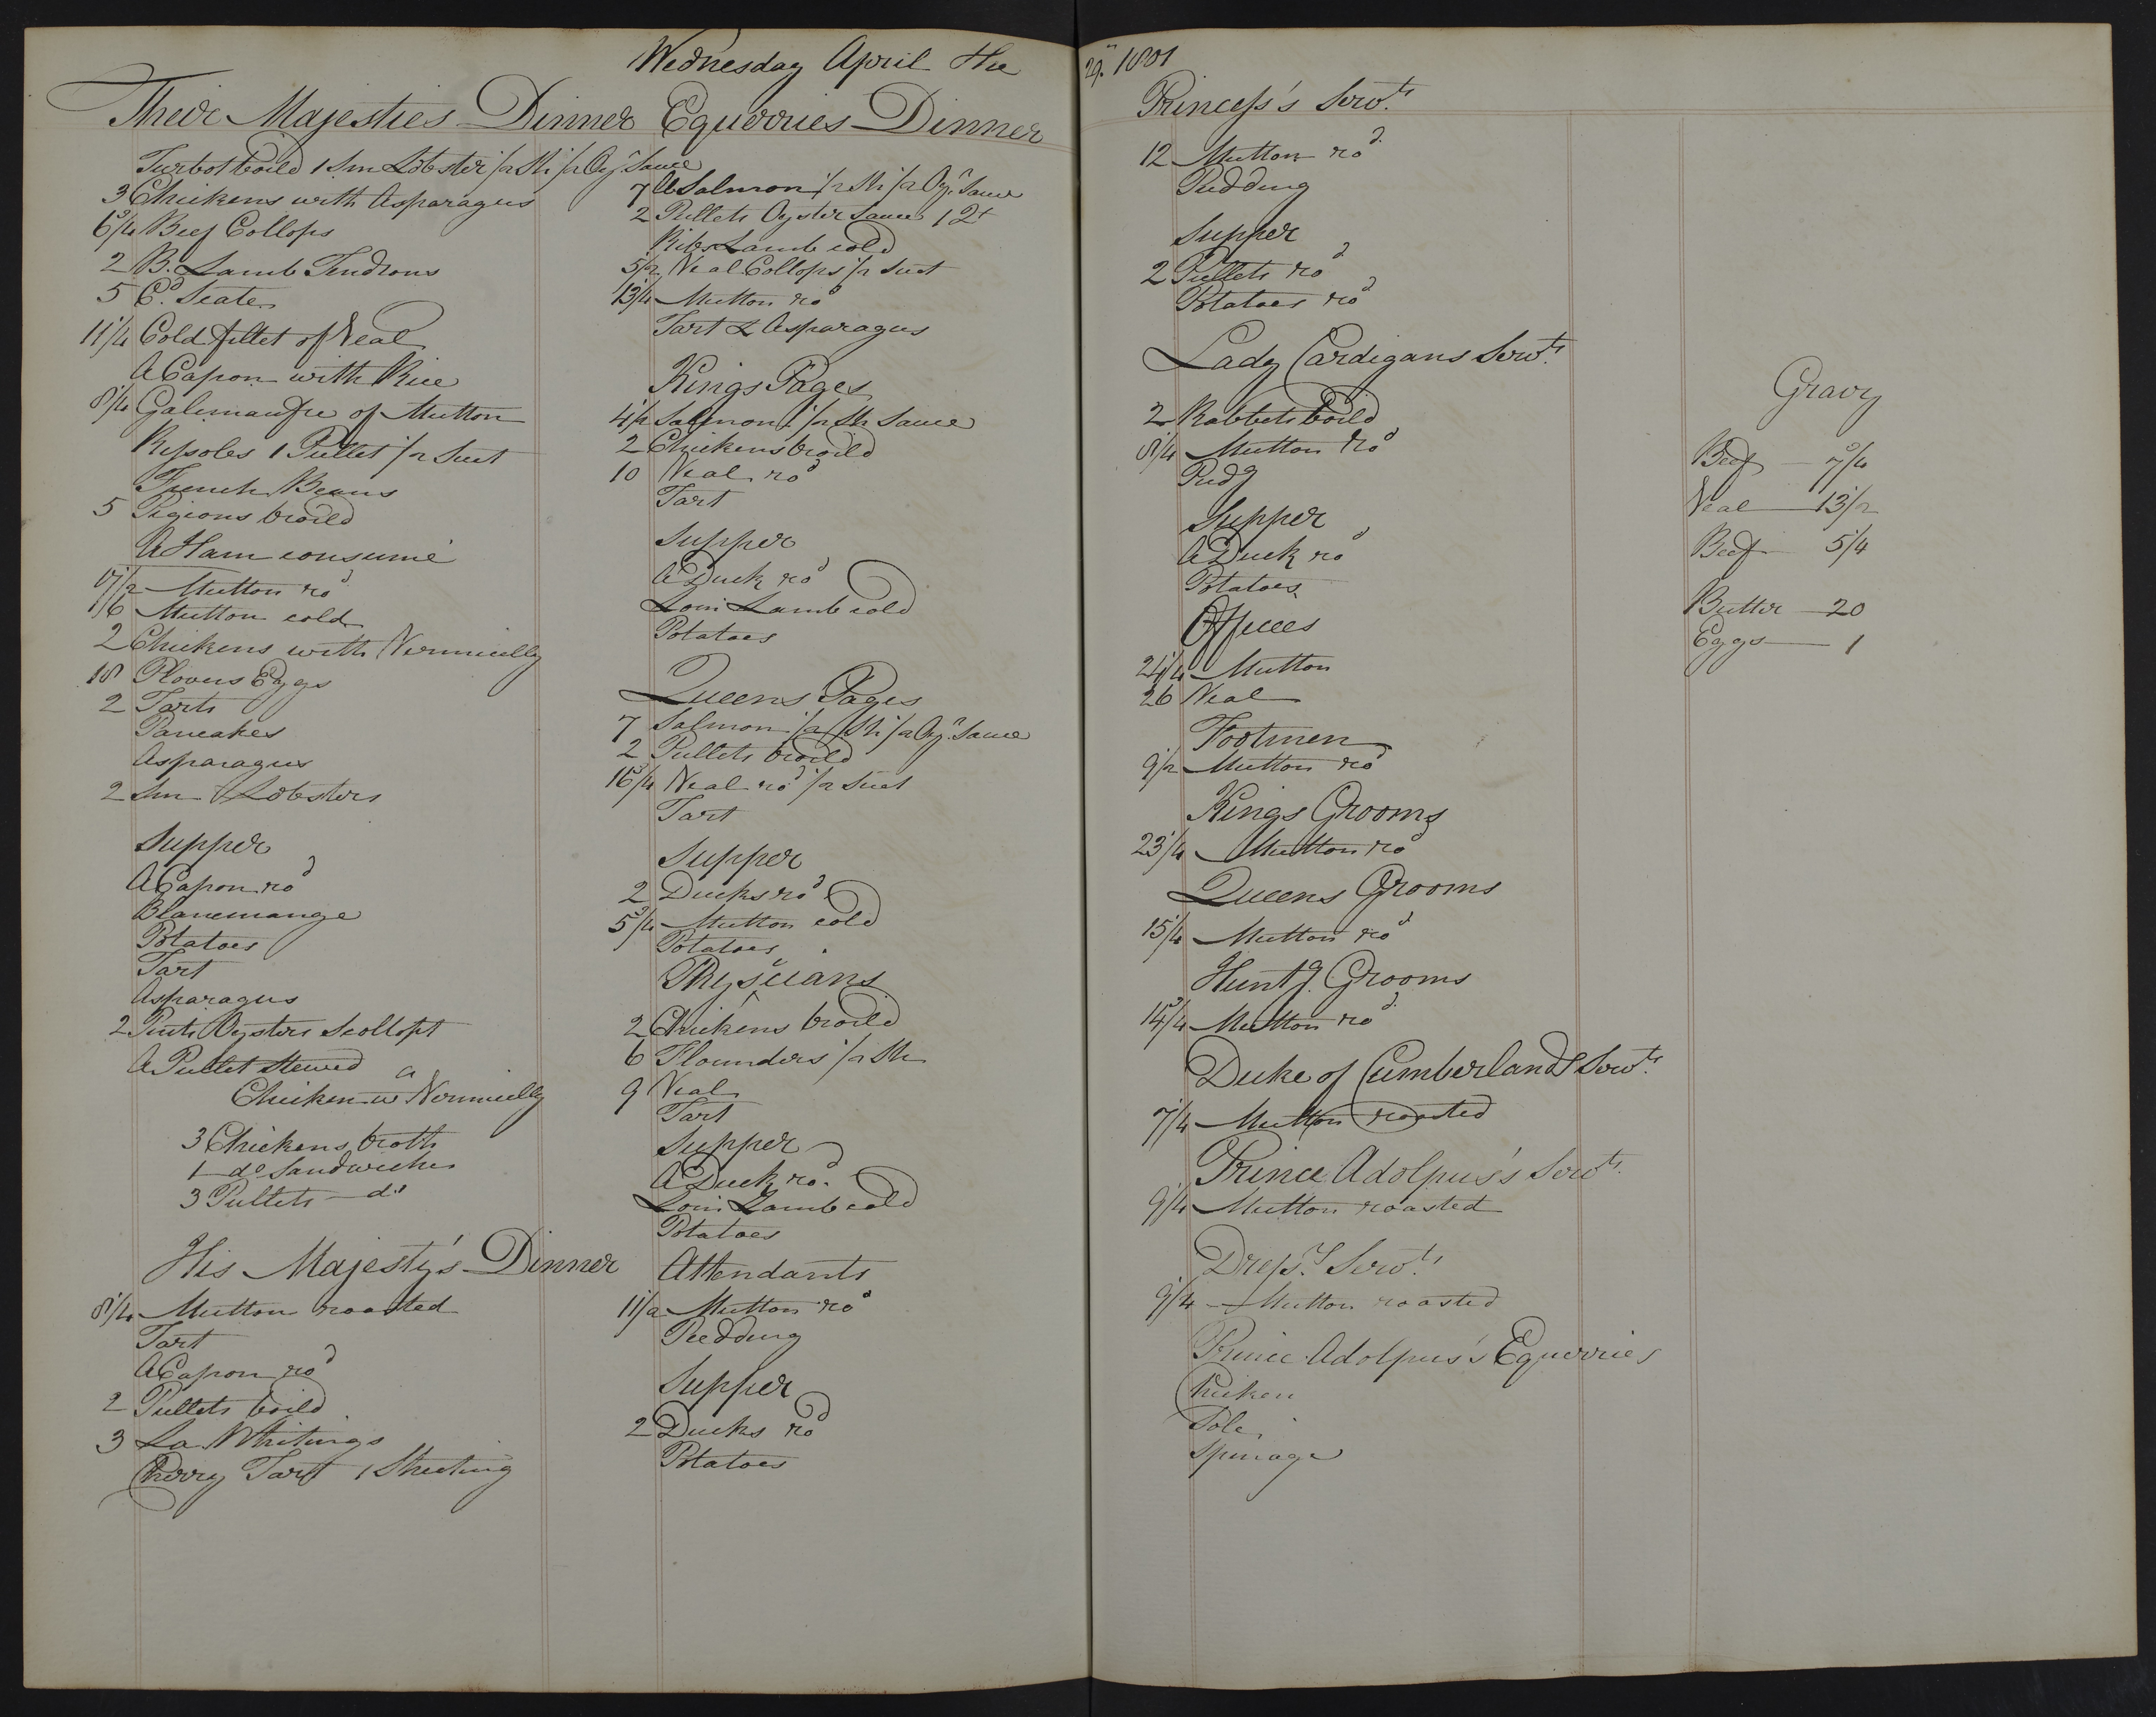 Wednesday April the 29th 1801
Their Majesties Dinner
Turbot boild 1 Sm Lobster 1/2 Sh 1/2 Oyr Sauce
3 Chickens with Asparagus
6 3/4 Beef Collops
2 B. Lamb Tendrons
5 Cd. Scate
11 1/4 Cold fillet of Veal
A Capon with Rice
8 1/4 Galimaufre of Mutton
Rissoles 1 Pullet 1/2 Suet
French Beans
5 Pigions broild
A Ham consumé
17 1/2 Mutton rod
16 Mutton cold
2 Chickens with Vermicelly
18 Plovers Eggs
2 Tarts
Pancakes
Asparagus
2 Sm Lobsters
Supper
A Capon rod
Blancmange
Potatoes
Tart
Asparagus
2 Pints Oysters Scollopt
A Pullet Stewed
a Chicken w Vermicelly
3 Chickens broth
1 do Sandwiches
3 Pullets do
His Majesty's Dinner
8 1/4 Mutton roasted
Tart
A Capon rod
2 Pullets boild
3 La Whitings
Cherry Tart
Equerries Dinner
7 lb Salmon 1/2 Sh 1/2 Oyr Sauce
2 Pullets Oyster Sauce 1 2t
Ribs Lamb cold
5 1/2 Veal Collops 1/2 Suet
13 1/4 Mutton rod
Tart & Asparagus
Kings Pages
4 1/2 Salmon 1/2 Sh Sauce
2 Chickens broild
10 Veal rod
Tart
Supper
A Duck rod
Loin Lamb cold
Potatoes
Queens Pages
7 Salmon 1/2 Sh 1/2 Oyr Sauce
2 Pullets broild
16 3/4 Veal rod 1/2 Suet
Tart
Supper
2 Ducks rod
5 3/4 Mutton cold
Potatoes
Physicians
2 Chickens broild
6 Flounders 1/2 Sh
9 Veal
Tart
Supper
A Duck rod
Loin Lamb cold
Potatoes
Attendants
11 1/2 Mutton rod
Pudding
Supper
2 Ducks rod
Potatoes
Princess's Servts.
12 Mutton rod
Pudding
Supper
2 Pullets rod
Potatoes rod
Lady Cardigans Servts.
2 Rabbets boild
8 1/4 Mutton rod
Pudg
Supper
A Duck rod
Potatoes
Offices
24 1/4 Mutton
26 Veal
Footmen
9 1/2 Mutton rod
Kings Grooms
23 1/4 Mutton rod
Queens Grooms
15 1/4 Mutton rod
Huntg. Grooms
14 3/4 Mutton rod
Duke of Cumberlands Servts.
7 1/4 Mutton roasted
Prince Adolpus's Servts.
9 1/4 Mutton roasted
Dressrs Servts.
9 1/4 Mutton roasted
Prince Adolpus's Equerries
Chicken
Sole
Spinage
Gravy
Beef 7 3/4
Veal 13 1/2
Beef 5 1/4
Butter 20
Eggs 1